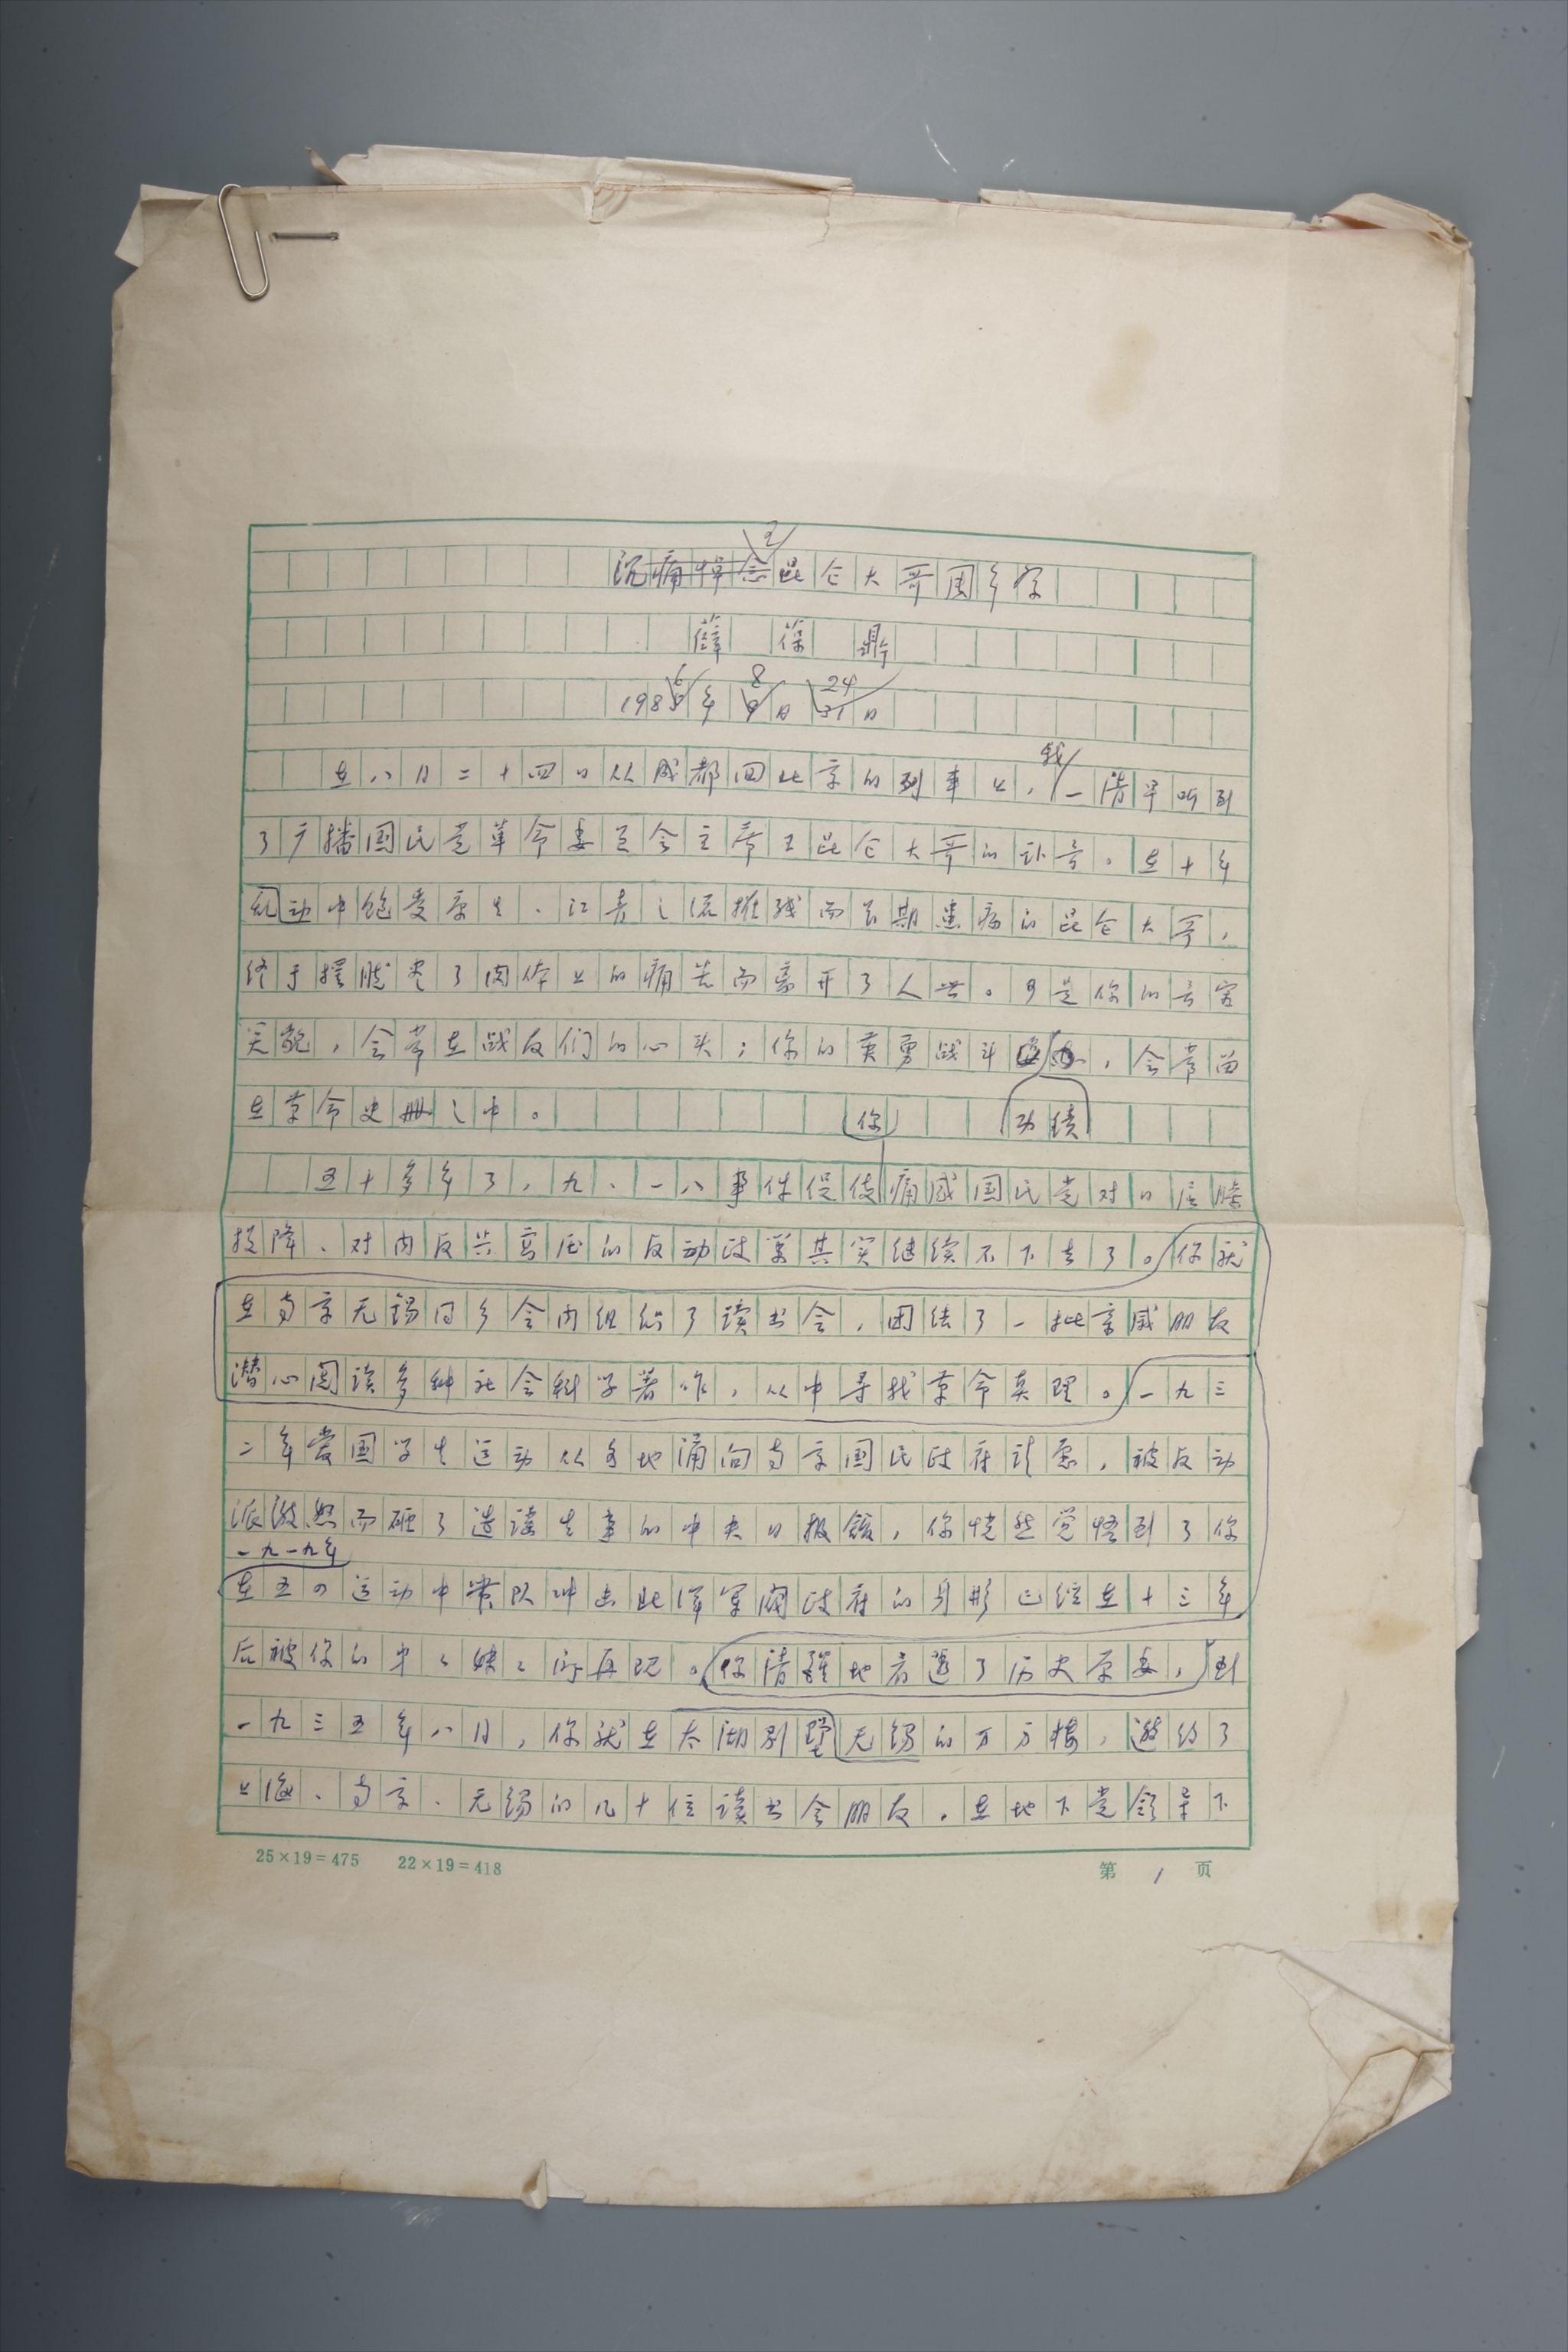 王
沉痛悼念昆仑大哥周年祭
薛葆鼎
6 8 24
1985年9月31日
我
在八月二十四日从成都回北京的列车上，一清早听到
了广播国民党革命委员会主席王昆仑大哥的讣告。在十年
乱动中饱受康生、江青之流摧残而长期患病的昆仑大哥，
终于摆脱尽了肉体上的痛苦而离开了人世。可是你的音容
笑貌，会常在战友们的心头；你的英勇战斗，会常留
在革命史册之中。
你 功绩
五十多年了，九、一八事件促使痛感国民党对日屈膝
投降、对内反共高压的反动政策其实继续不下去了。你就
在南京无锡同乡会内组织了读书会，团结了一批亲戚朋友
潜心阅读多种社会科学著作，从中寻找革命真理。一九三
二年爱国学生运动从各地涌向南京国民政府请愿，被反动
派激怒而砸了造谣生事的中央日报馆，你恍然觉悟到了你
一九一九年
在五四运动中带队冲击北洋军阀政府的身形已经在十三年
后被你的弟弟妹妹所再现。你清醒地看透了历史原委，到
一九三五年八月，你就在太湖别墅无锡的万方楼，邀约了
上海、南京、无锡的几十位读书会朋友，在地下党领导下
25×19=475 22×19=418 第1页